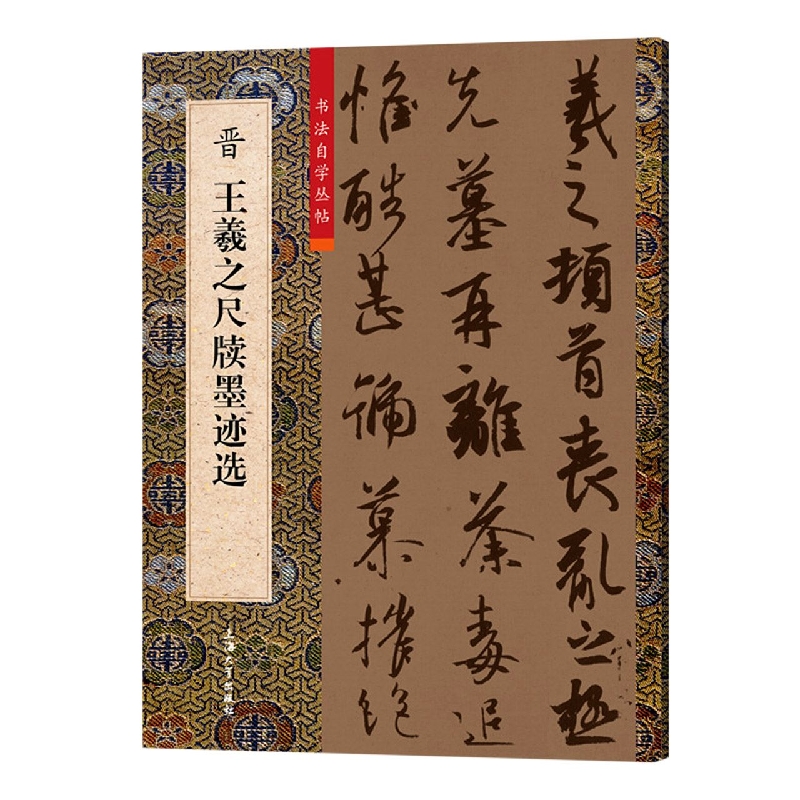 书法自学丛帖
晋 王羲之尺牍墨迹选
上海大学出版社
羲之頓首喪亂之極
先墓再離荼毒追
惟酷甚號慕摧絕